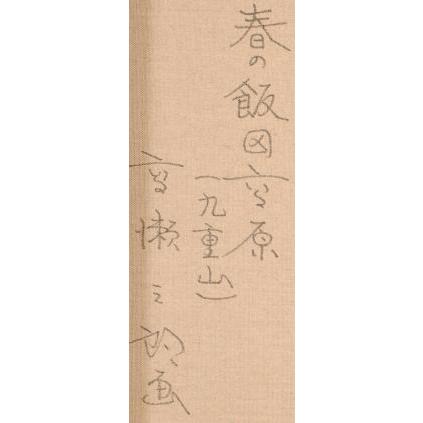 春の飯田高原
(九重山)
高瀬三郎画